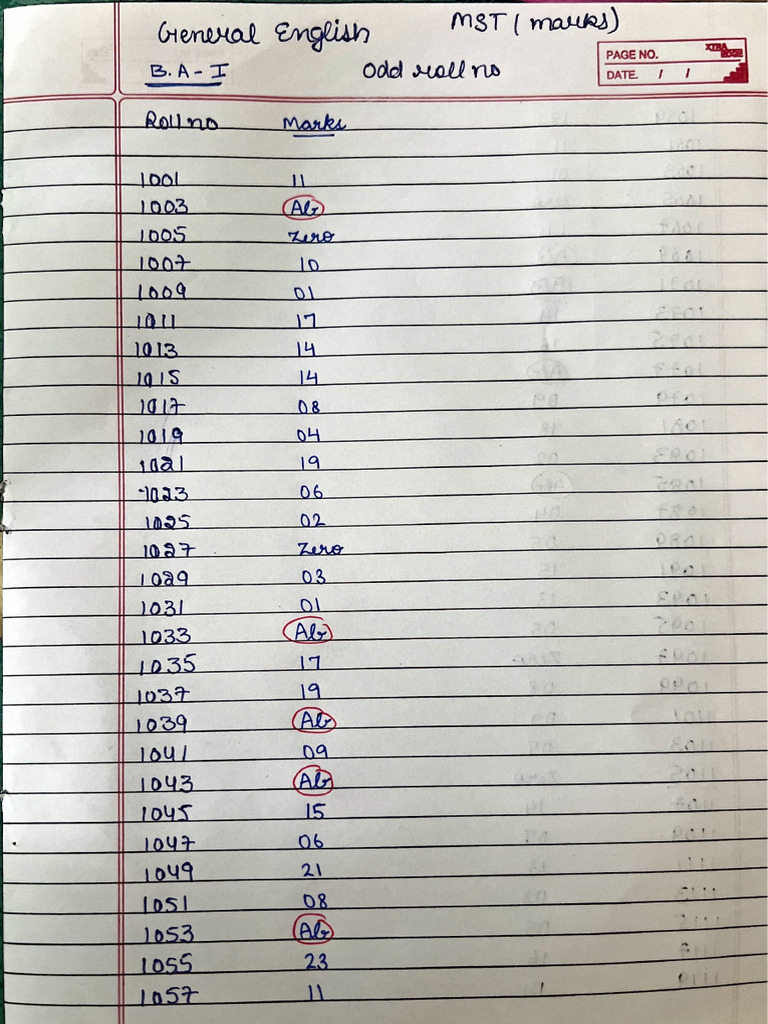 General English MST (marks)
B.A-I Odd roll no
PAGE NO.
DATE. / /
Roll no Marks
1001 11
1003 Ab
1005 Zero
1007 10
1009 01
1011 17
1013 14
1015 14
1017 08
1019 04
1021 19
1023 06
1025 02
1027 Zero
1029 03
1031 01
1033 Ab
1035 17
1037 19
1039 Ab
1041 09
1043 Ab
1045 15
1047 06
1049 21
1051 08
1053 Ab
1055 23
1057 11